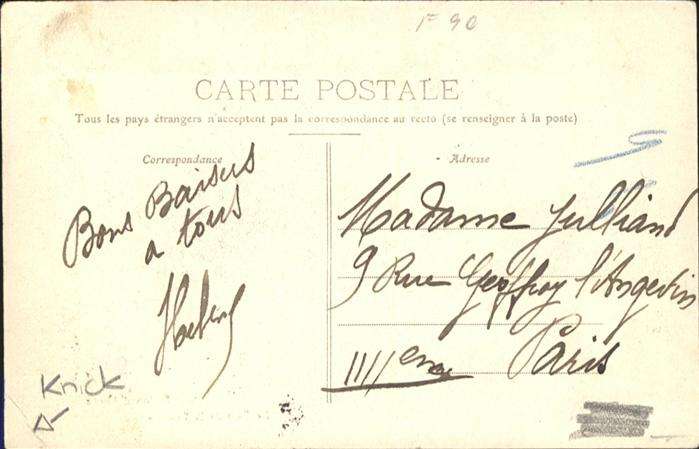 1F 90
CARTE POSTALE
Tous les pays étrangers n'acceptent pas la correspondance au recto (se renseigner à la poste)
Correspondance
Bons Baisers
a tous
Adresse
Madame Julliand
9 Rue Geoffroy l'Angevin
IIIIeme Paris
Knick